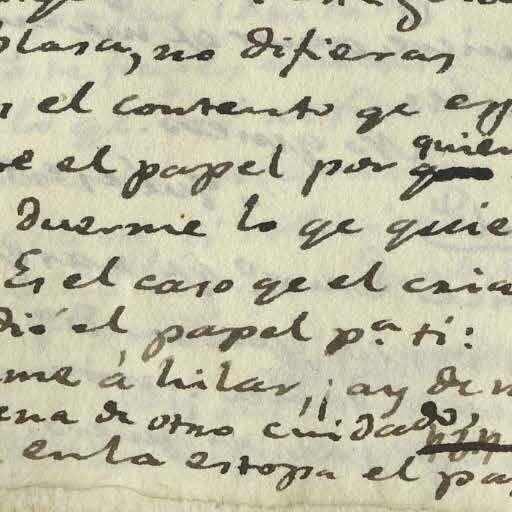 plasa, no difieras
el contento qe esp
el papel por quien
duerme lo qe quie
Es el caso qe el cria
dió el papel pª tí:
me á hilar, ¡ay de m
ena de otro cuidado,
en la estopa el pa